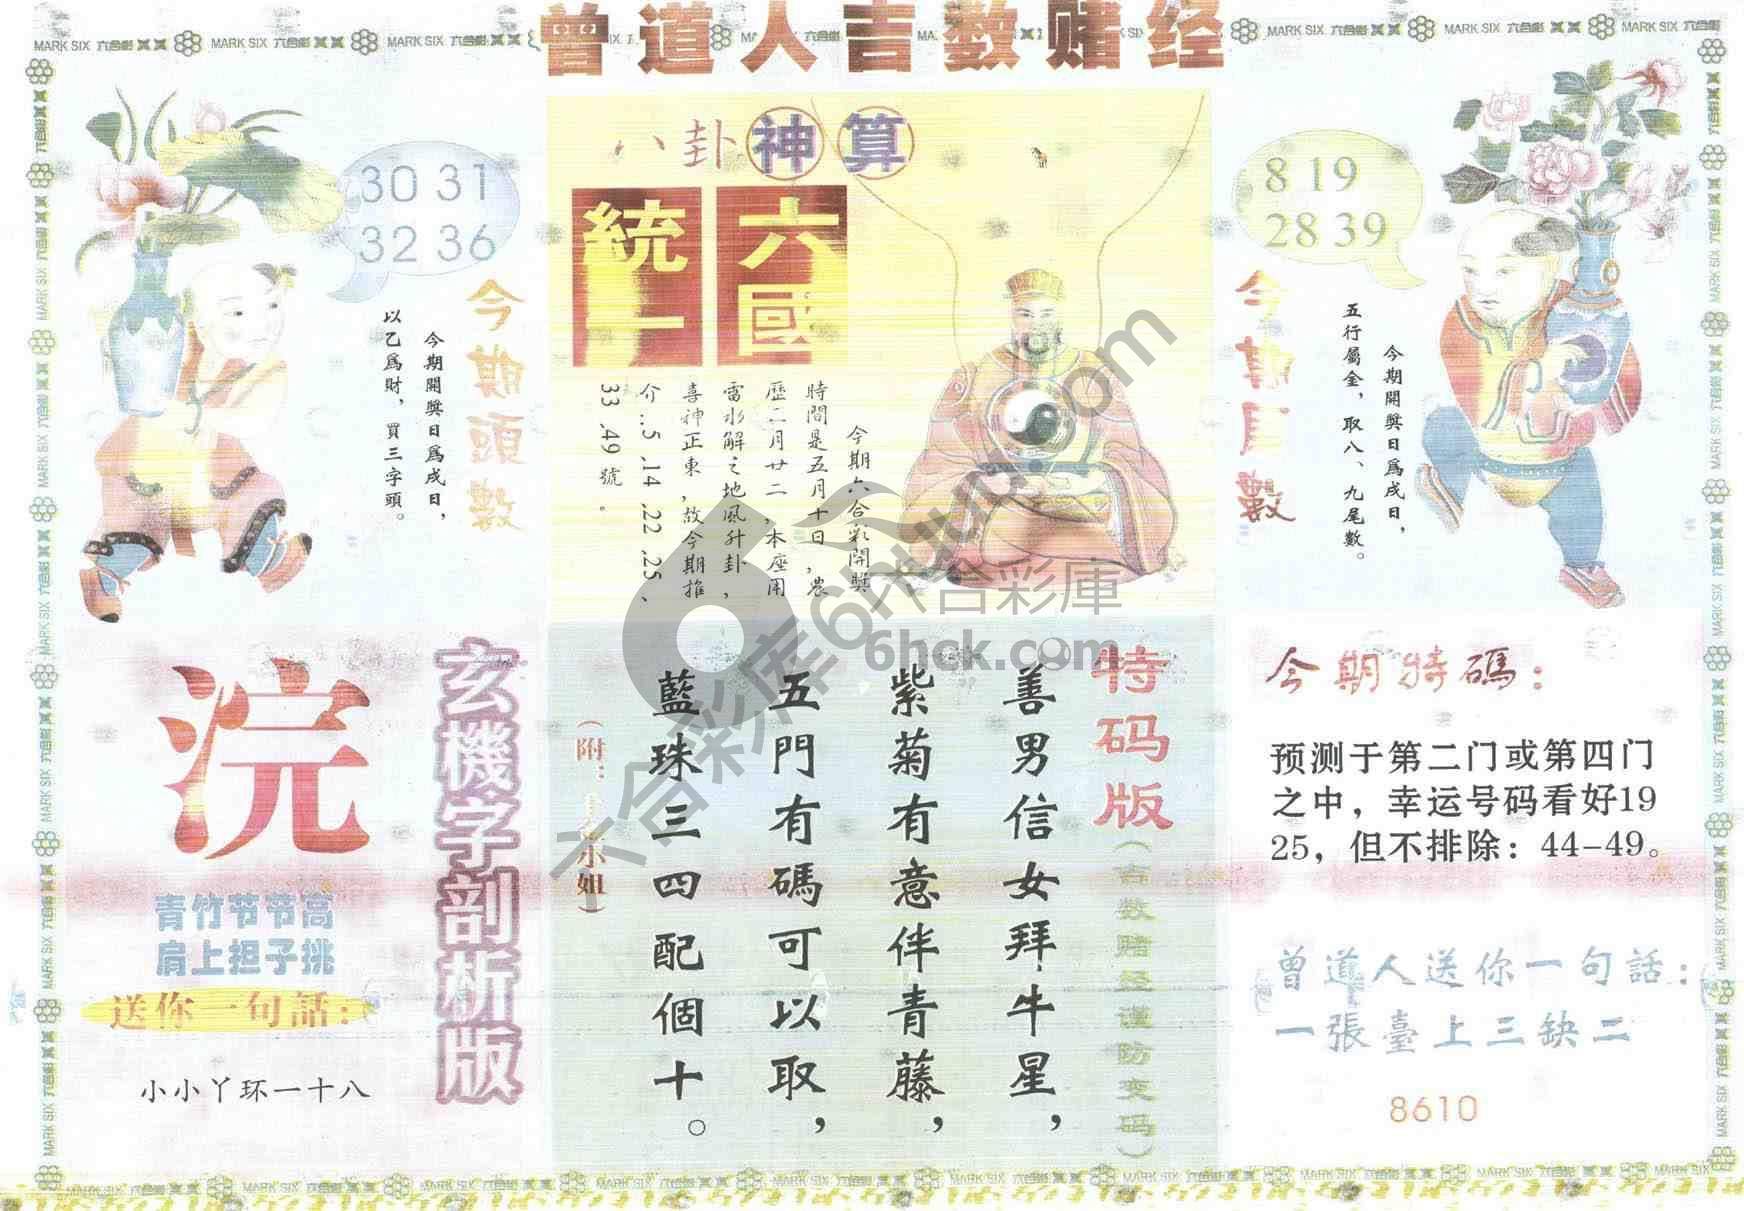 曾道人吉数赌经
MARK SIX 六合彩
30 31
32 36
今期頭數
今期開獎日爲戌日，
以乙爲財，買三字頭。
八卦神算
六國
統一
今期六合彩開獎
時間是五月十日,農
歷二月廿二,本座用
雷水解之地風升卦,
喜神正東,故今期推
介..5 .14 .22 .25、
33 .49 號。
8 19
28 39
今期尾數
今期開獎日爲戌日，
五行屬金，取八、九尾數。
玄機字剖析版
浣
青竹节节高
肩上担子挑
送你一句話：
小小丫环一十八
特码版
(吉数赌经谨防变码)
善男信女拜牛星，
紫菊有意伴青藤，
五門有碼可以取，
藍珠三四配個十。
小姐)
今期特碼：
预测于第二门或第四门
之中，幸运号码看好19
25，但不排除：44-49。
曾道人送你一句話：
一張臺上三缺二
8610
六合彩庫
6hck.com
六合彩库6htuku.com